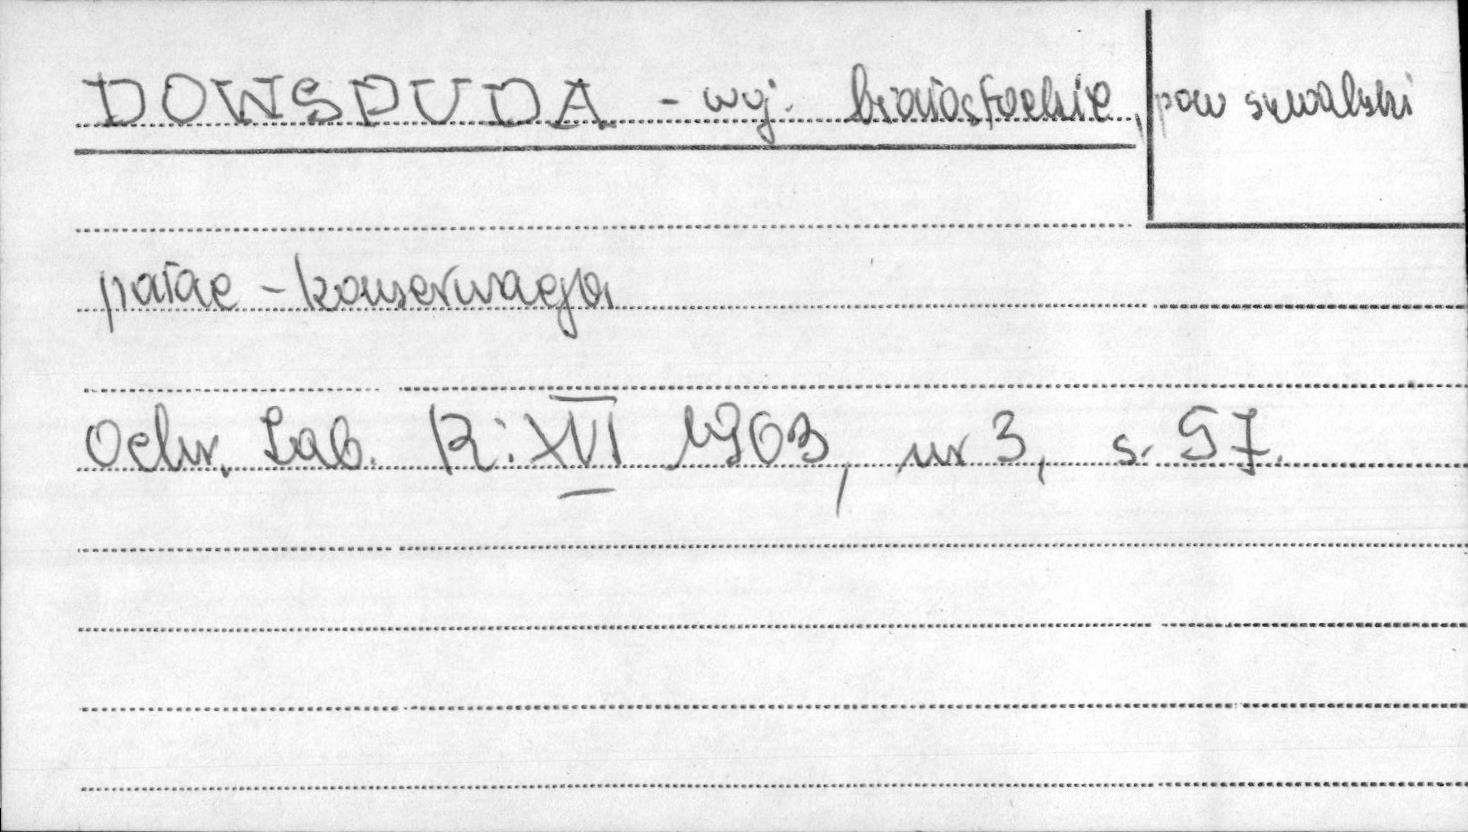 DOWSPUDA - woj. białostockie, pow suwalski
pałac - konserwacja
Ochr. Zab. R: XVI 1963, nr 3, s. 57.